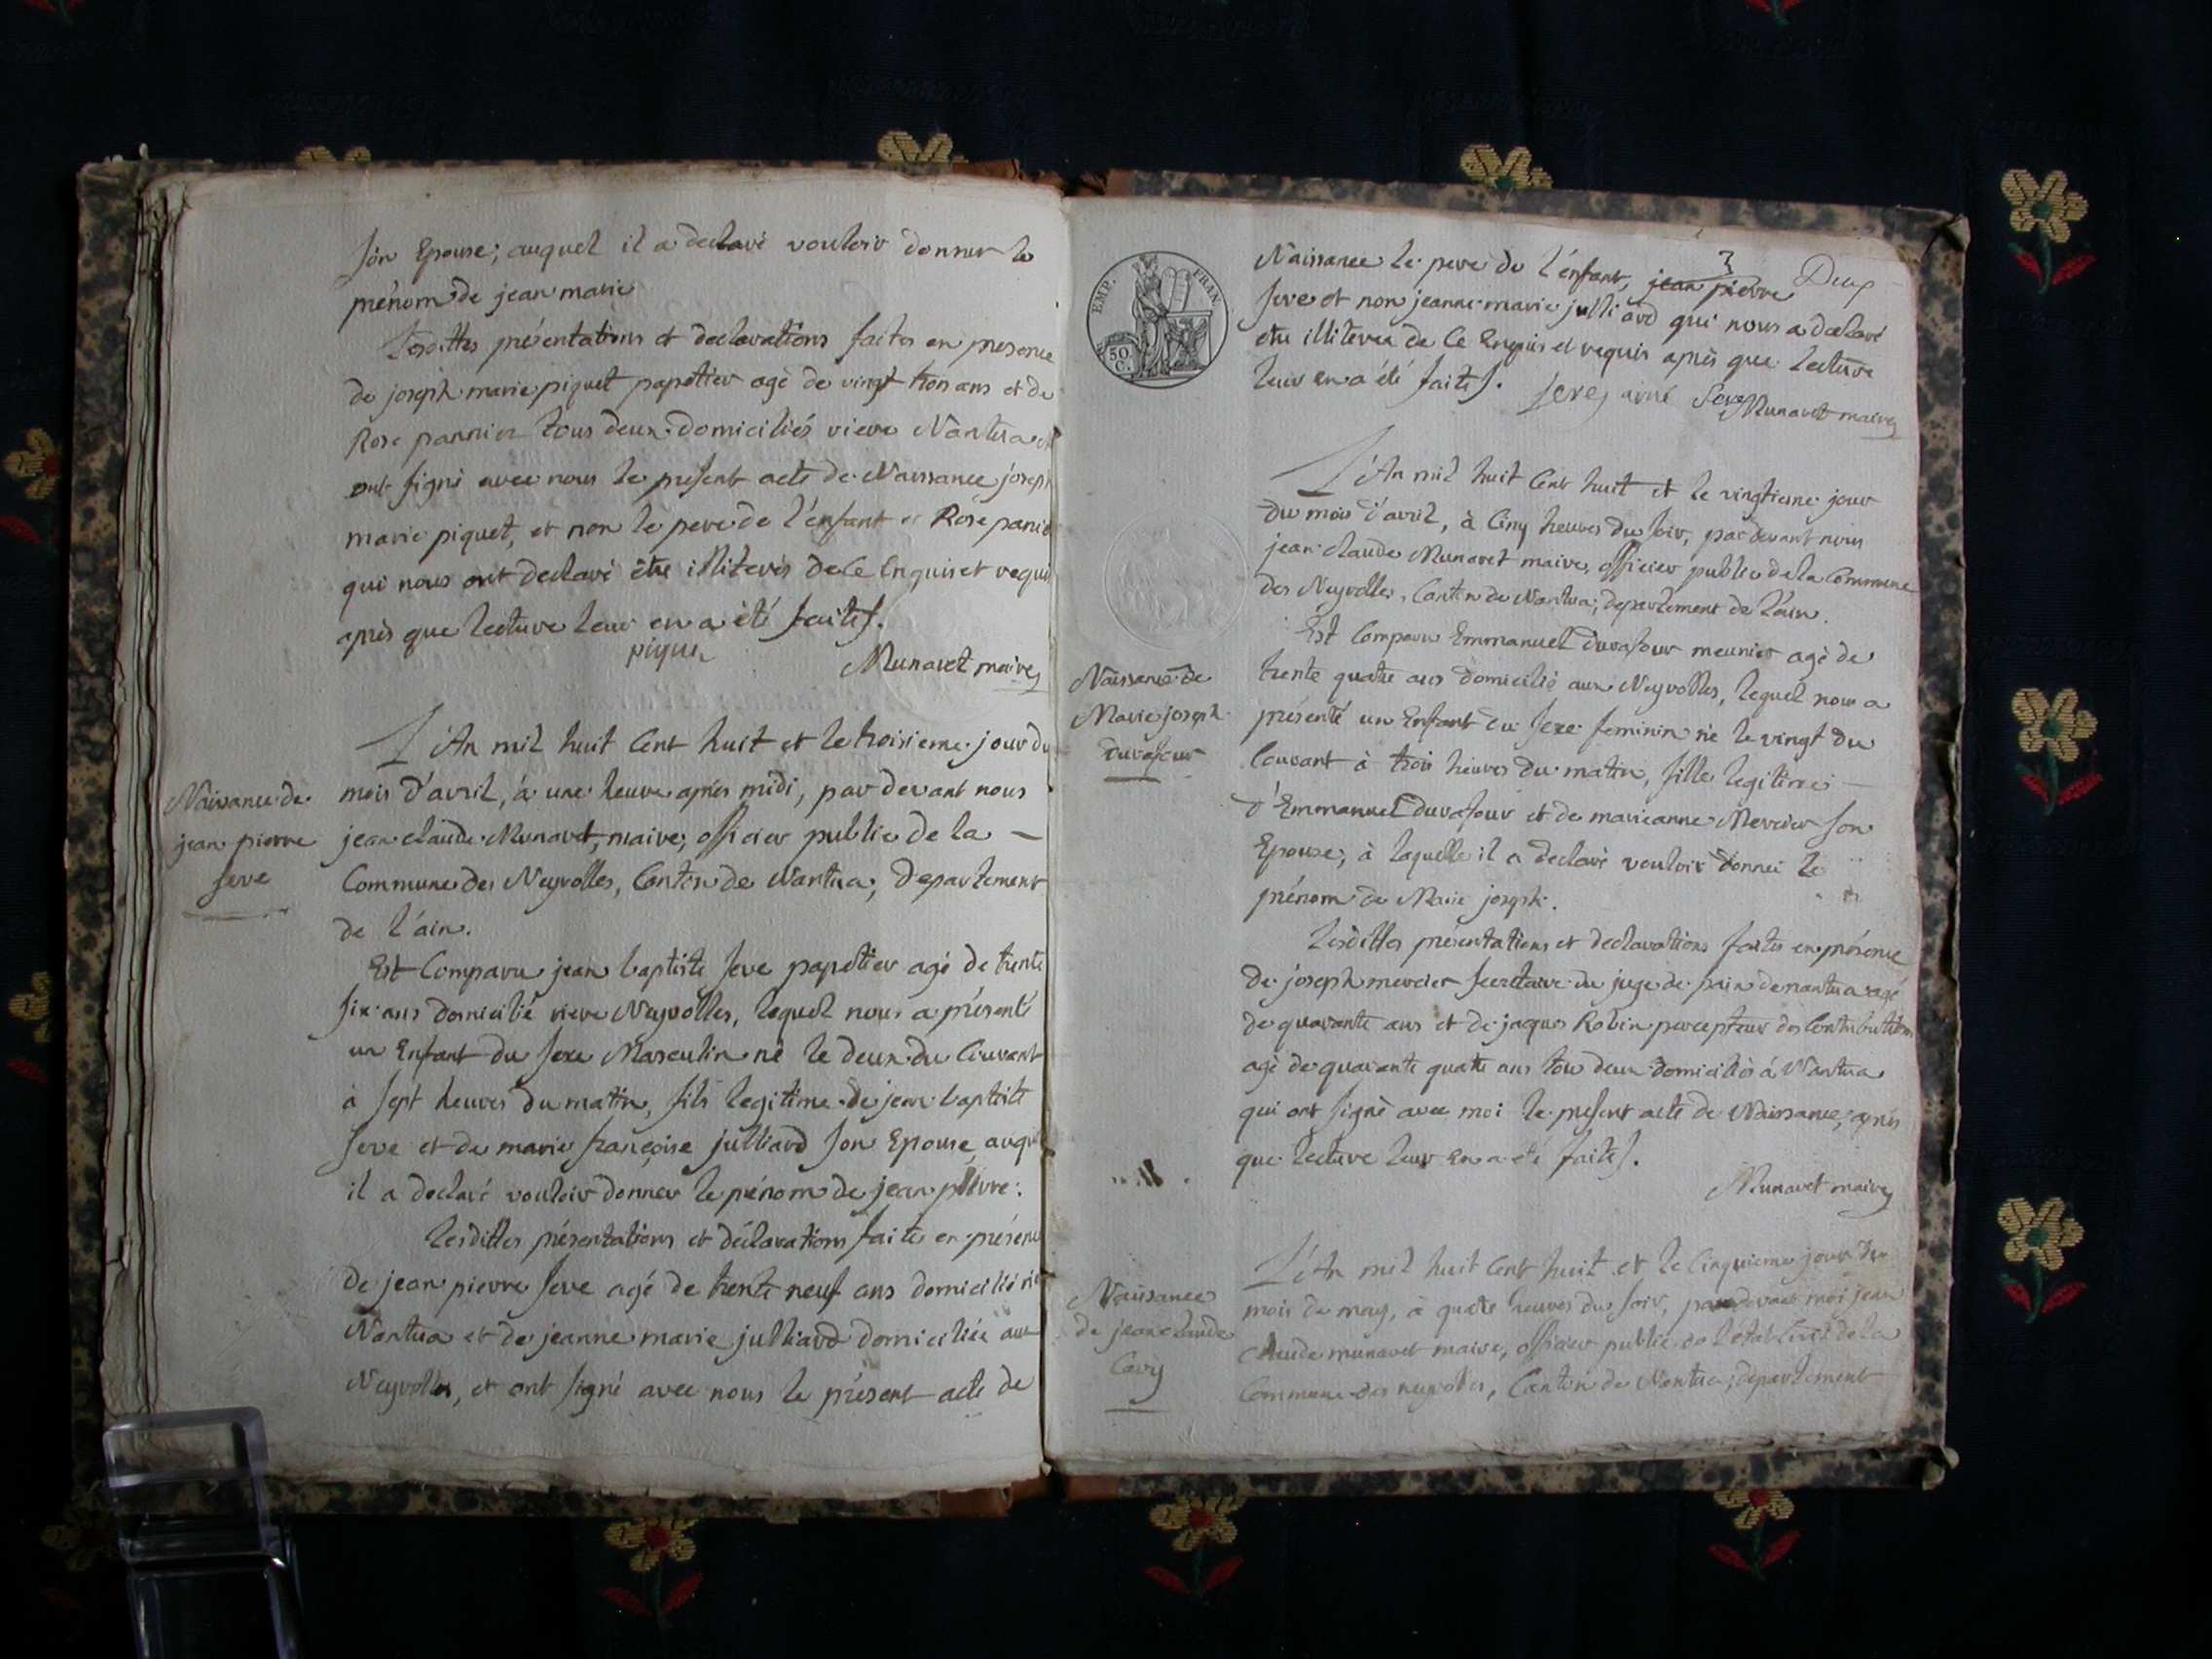 son Epouse; auquel il a declaré vouloir donner le
prénom de jean marie
Lesdittes présentations et declarations faites en presence
de joseph marie piquet papetier agé de vingt trois ans et de
Rose pannier tous deux domiciliés riere Nantua et
ont signé avec nous le present acte de Naissance joseph
marie piquet, et non le pere de l'enfant et Rose panier
qui nous ont declaré être illiterés de ce Enquis et requis
après que lecture leur en a été faite.
piquet
Munaret maire
L'An mil huit Cent huit et le troisieme jour du
mois d'avril, à une heure après midi, par devant nous
jean claude Munaret, maire, officier public de la
Commune des Neyrolles, Canton de Nantua, departement
de l'ain.
Naissance de
jean pierre
seve
Est Comparu jean baptiste seve papetier agé de trente
six ans domicilié riere Neyrolles, lequel nous a présenté
un Enfant du sexe Masculin né le deux du Courant
à sept heures du matin, fils legitime de jean baptiste
seve et de marie françoise julliard son Epouse, auquel
il a declaré vouloir donner le prénom de jean pierre.
lesdittes présentations et déclarations faites en présence
de jean pierre seve agé de trente neuf ans domicilié
Nantua et de jeanne marie julliard domiciliée aux
Neyrolles, et ont signé avec nous le présent acte de
EMP. FRAN.
50 C.
3
Deux
Naissance le pere de l'énfant, jean pierre
seve et non jeanne marie julliard qui nous a declaré
etre illiterée de Ce Enquis et requis après que lecture
leur en a été faite. seve ainé Seve Munaret maire
L'An mil huit Cent huit et le vingtieme jour
du mois d'avril, à Cinq heures du soir, par devant nous
jean claude Munaret maire, officier public de la Commune
des Neyrolles, Canton de Nantua, departement de l'ain.
Naissance de
Marie joseph
duvafour
Est Comparu Emmanuel duvafour meunier agé de
trente quatre ans domicilié aux Neyrolles, lequel nous a
présenté un Enfant du sexe feminin né le vingt du
Courant à trois heures du matin, fille legitime
d'Emmanuel duvafour et de marieanne Mercier son
Epouse, à laquelle il a declaré vouloir donner le
prénom de Marie joseph.
lesdittes présentations et declarations faites en présence
de joseph mercier secretaire du juge de paix de nantua agé
de quarante ans et de jaques Robin percepteur des Contributions
agé de quarante quatre ans tou deux domiciliés à Nantua
qui ont signé avec moi le present acte de Naissance, après
que lecture leur en a été faite.
Munaret maire
Naissance
de jean claude
L'An mil huit Cent huit et le Cinquieme jour du
mois de may, à quatre heures du soir, par devant moi jean
claude munaret maire, officier public de l'état Civil de la
Commune des neyrolles, Canton de Nantua, departement